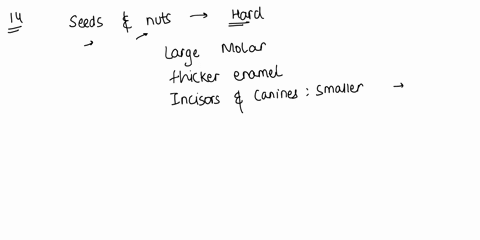 14 Seeds & nuts → Hard
Large Molar
thicker enamel
Incisors & Canines : smaller →